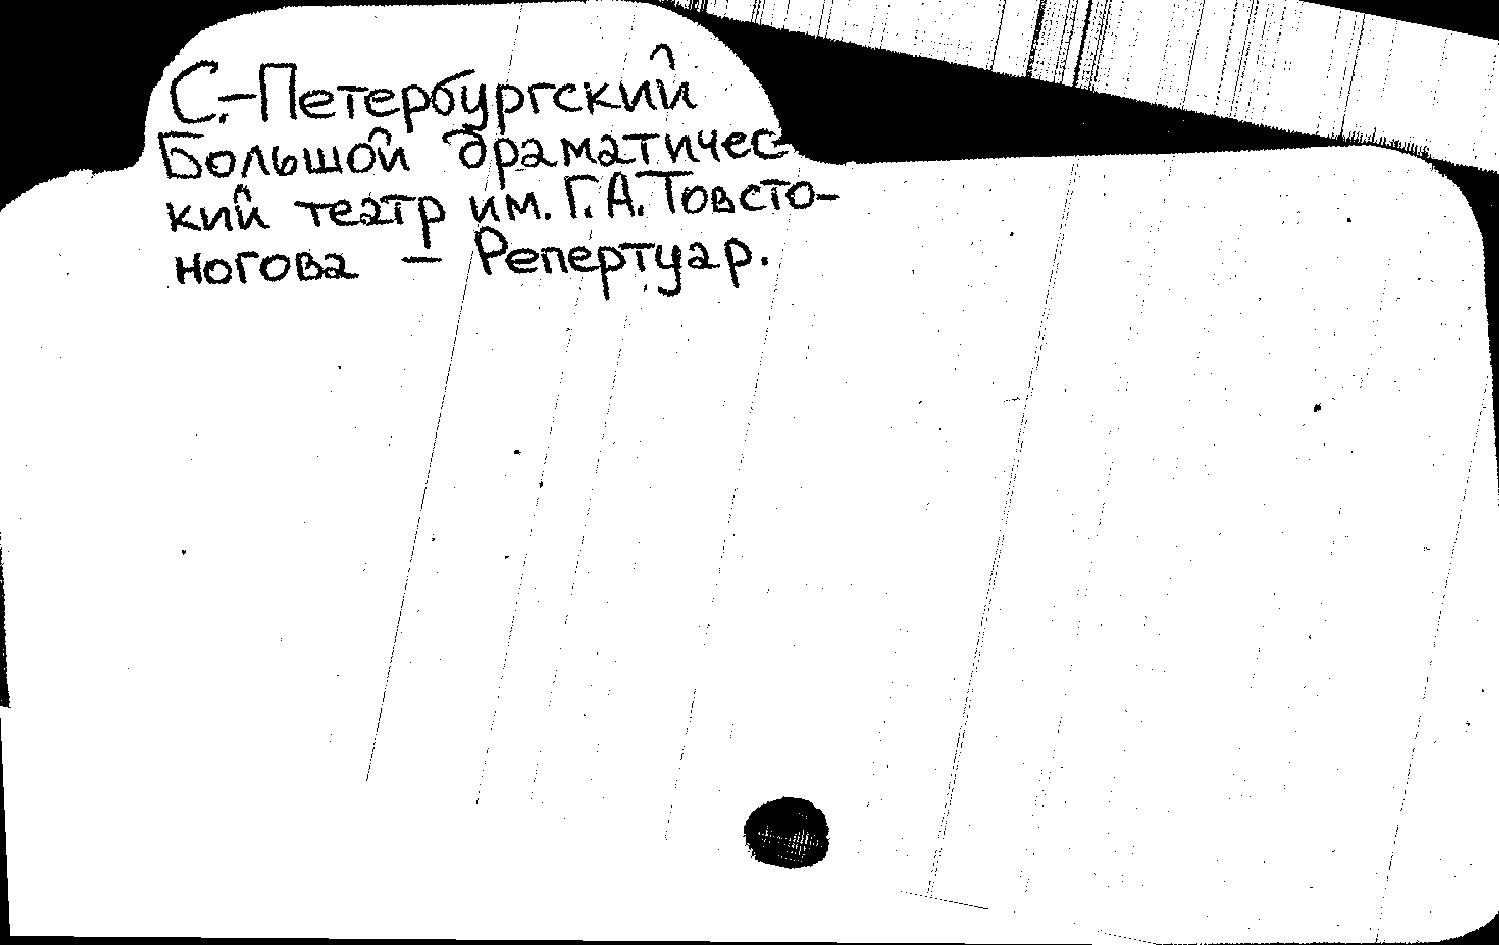 С.-Петербургский
Большой драматичес-
кий театр им. Г.А. Товсто-
ногова — Репертуар.